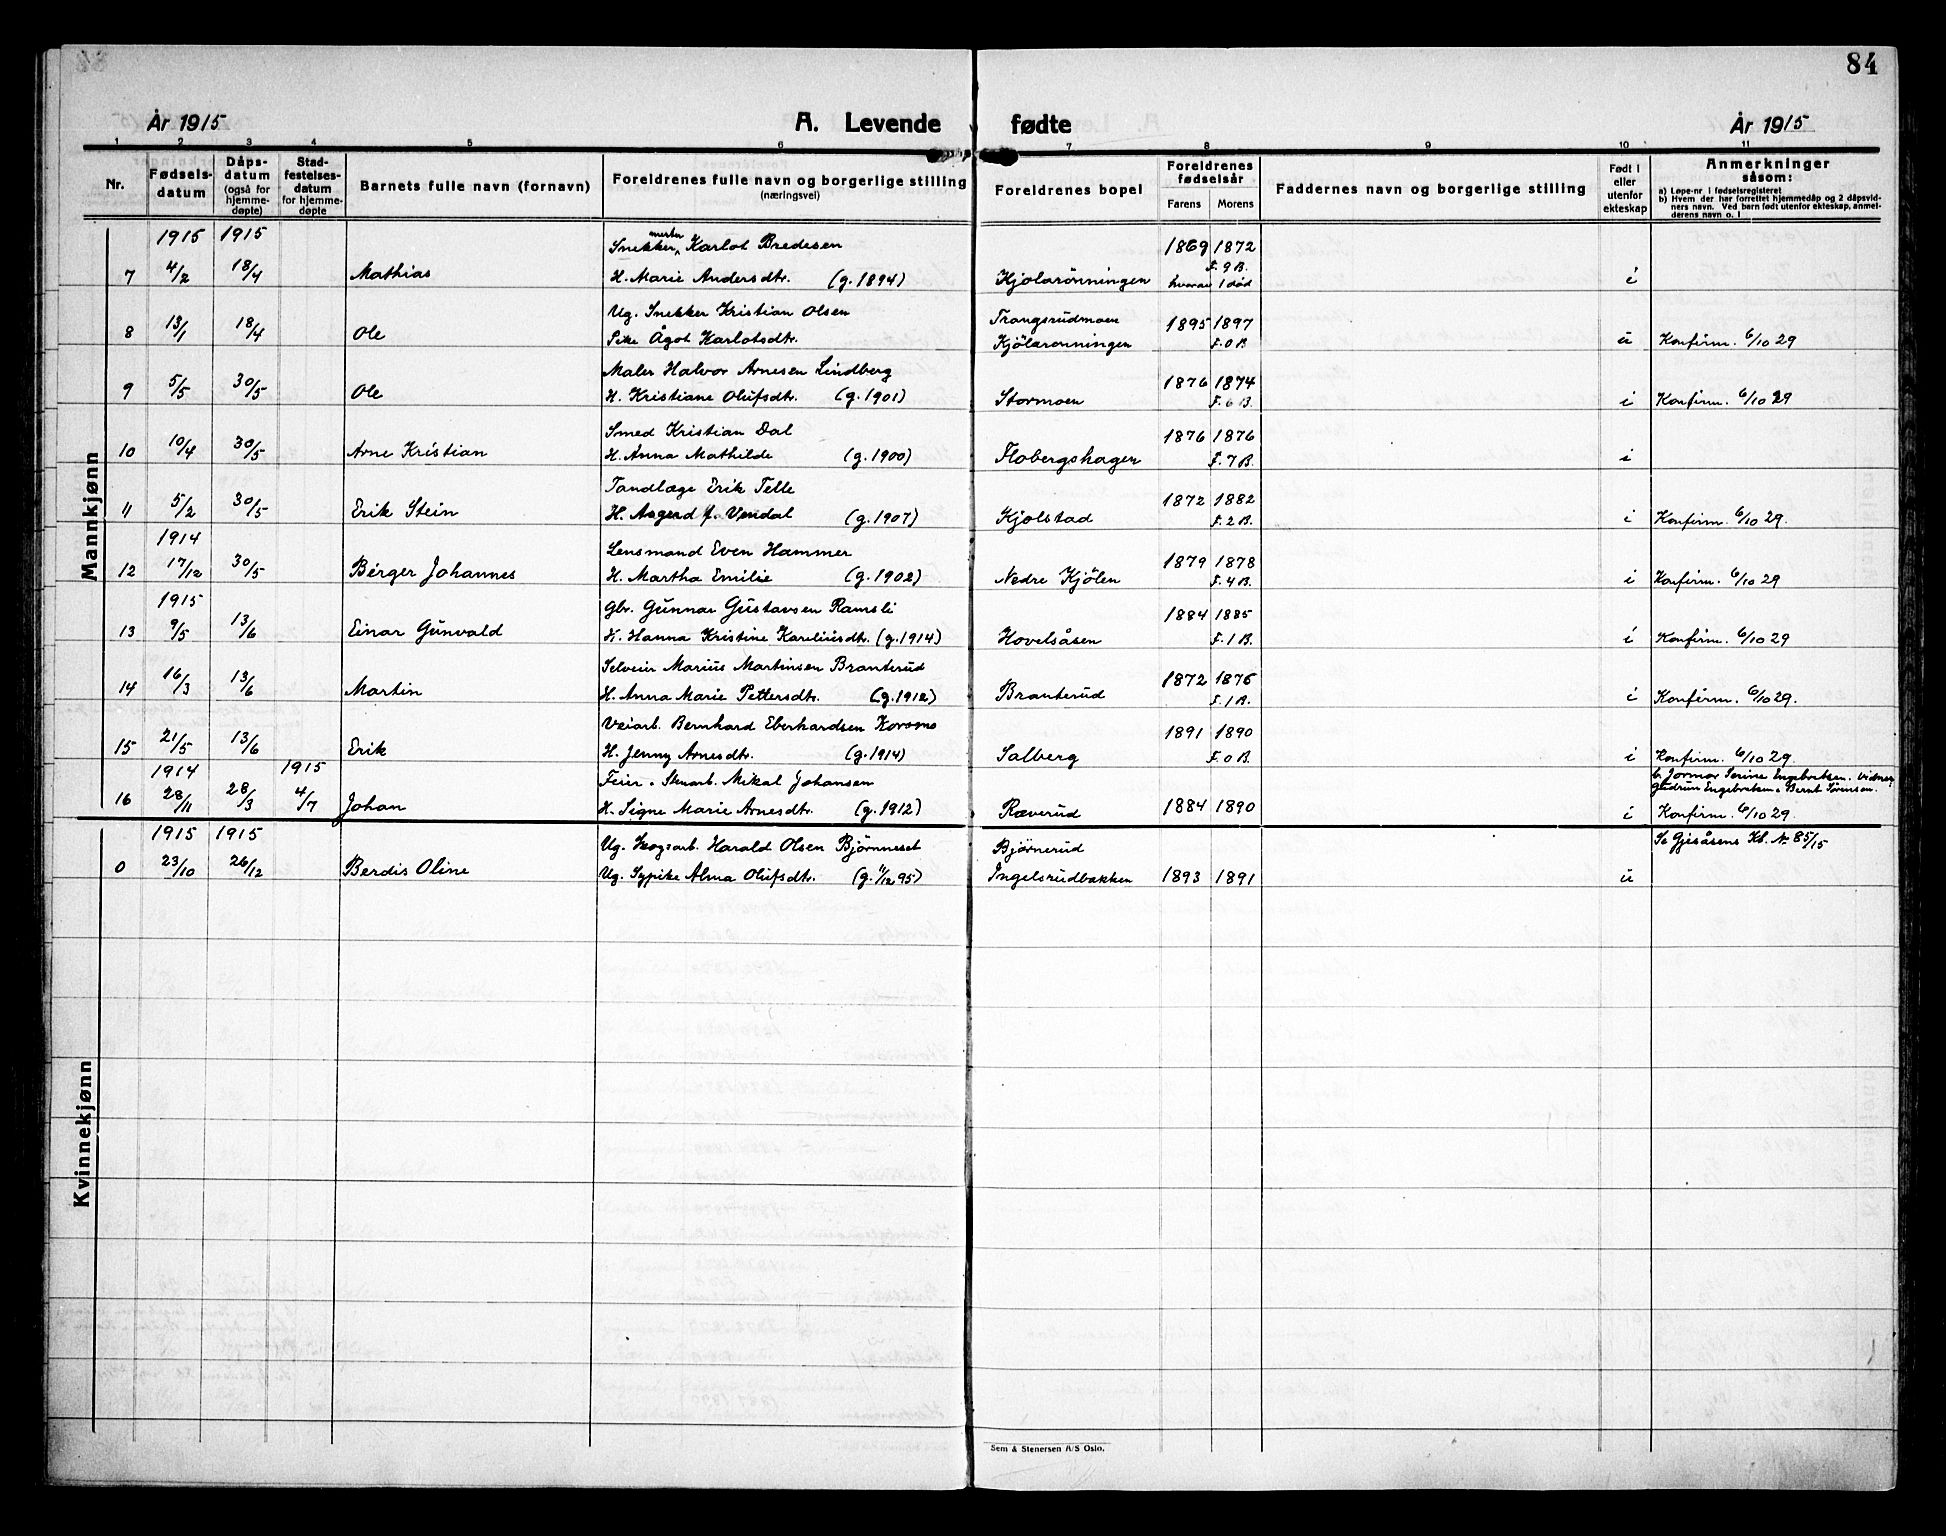 84
År 1915
A. Levende fødte
År 1915
1 2 3 4 5 6 7 8 9 10 11
Nr.
Fødsels-datum
Dåps-datum (også for hjemme-døpte)
Stad-festelses-datum for hjemme-døpte
Barnets fulle navn (fornavn)
Foreldrenes fulle navn og borgerlige stilling
(næringsvei)
Foreldrenes bopel
Foreldrenes fødselsår
Farens Morens
Faddernes navn og borgerlige stilling
Født i eller utenfor ekteskap
Anmerkninger såsom:
a) Løpe-nr. i fødselsregisteret
b) Hvem der har forrettet hjemmedåp og 2 dåpsvid-
ners navn. Ved barn født utenfor ekteskap, anmel-
derens navn o. l
Mannkjønn
1915 1915 Snekkermester Karlot Bredesen 1869 1872
F. 9 B.
7 4/2 18/4 Mathias H. Marie Andersdtr. (g. 1894) Kjolarønningen hvorav 1 død i
Ug. Snekker Kristian Olsen Trangsrudmoen 1895 1897
8 13/1 18/4 Ole Pike Ågot Karlotsdtr. Kjölarönningen F. 0 B u Konfirm. 6/10 29
Maler Halvor Arnesen Lindberg 1876 1874
9 5/5 30/5 Ole H. Kristiane Olufsdtr. (g. 1901) Stormoen F. 6 B. i Konfirm. 6/10 29
Smed Kristian Dal 1876 1876
10 10/4 30/5 Arne Kristian H. Anna Mathilde (g. 1900) Flobergshagen F. 7 B. i
Tandlæge Erik Telle 1872 1882
11 5/2 30/5 Erik Stein H. Aagerd f. Vendal (g. 1907) Kjølstad F. 2 B. i Konfirm. 6/10 29.
1914 Lensmand Even Hammer 1879 1878
12 17/12 30/5 Berger Johannes H. Martha Emilie (g. 1902) Nedre Kjölen F. 4 B. i Konfirm. 6/10 29
1915 Gbr. Gunnar Gustavsen Ramsli 1884 1885
13 9/5 13/6 Einar Gunvald H. Hanna Kristine Kareliusdtr. (g. 1914) Hovelsåsen F. 1 B. i Konfirm. 6/10 29
Selveier Marius Martinsen Branterud 1872 1876
14 16/3 13/6 Martin H. Anna Marie Pettersdtr. (g. 1912) Branterud F. 1 B. i Konfirm. 6/10 29.
Veiarb. Bernhard Eberhardsen Korsmo 1891 1890
15 21/5 13/6 Erik H. Jenny Arnesdtr. (g. 1914) Salberg F. 0 B. i Konfirm. 6/10 29.
1914 1915 Feier o Stenarb. Mikal Johansen b. Jormor Serine Engebretsen. Vidner,
Gudrun Engebretsen o Bernt Sørensen.
16 28/11 28/3 4/7 Johan H. Signe Marie Arnesdtr. (g. 1912) Ræverud 1884 1890 i Konfirm. 6/10 29.
Kvinnekjønn
1915 1915 Ug. Skogsarb. Harald Olsen Bjørnneset Bjørnerud Se Gjesåsens Kb. No 85/15
0 23/10 26/12 Berdis Oline Ug. Sypike Alma Olufsdtr. (g. 1/12 95) Ingelsrudbakken 1893 1891 u
Sem & Stenersen A/S Oslo.